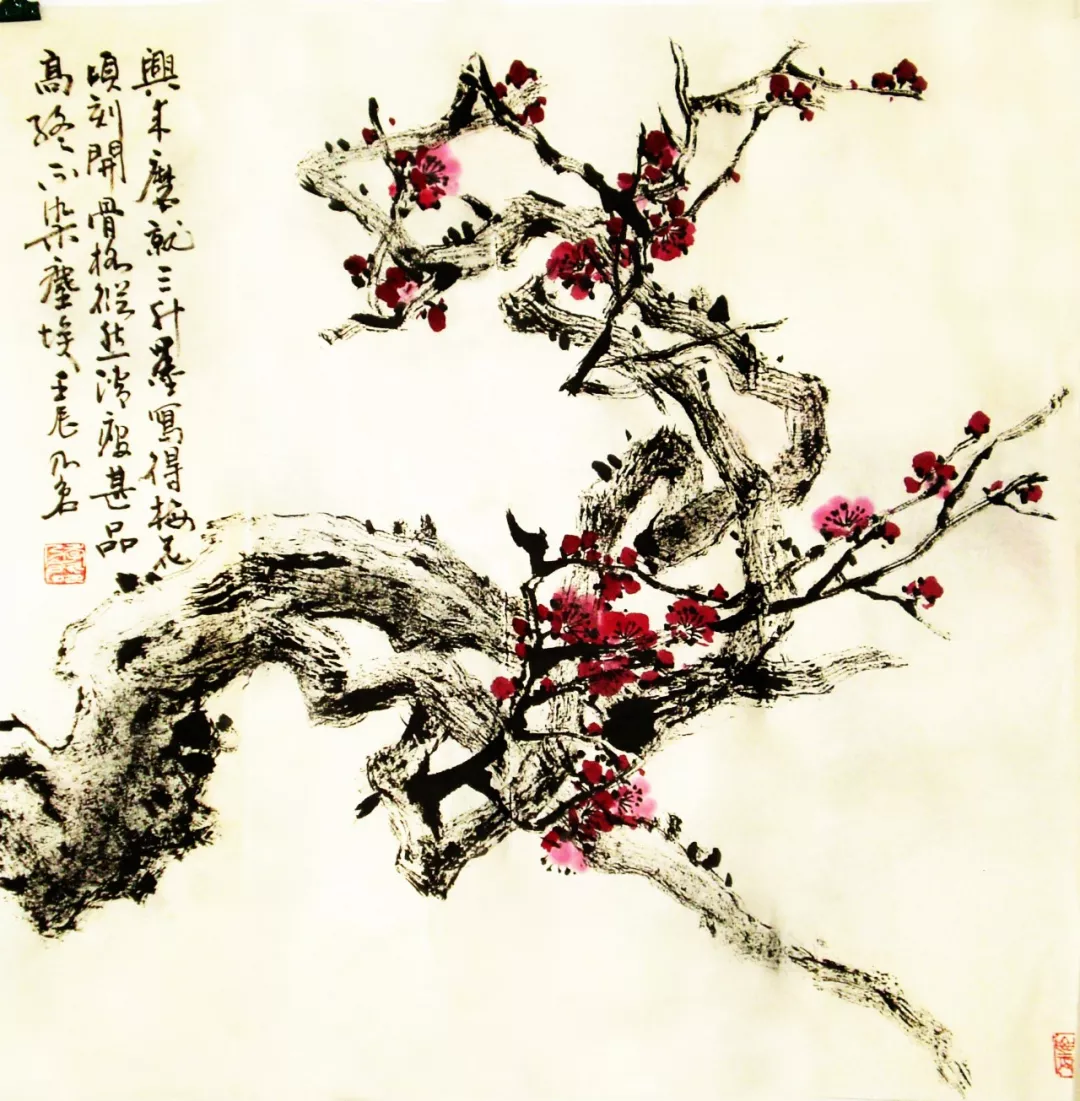 興來磨就三升墨寫得梅花
頃刻開骨格縱然清瘦甚品
高終不染塵埃壬辰乃名